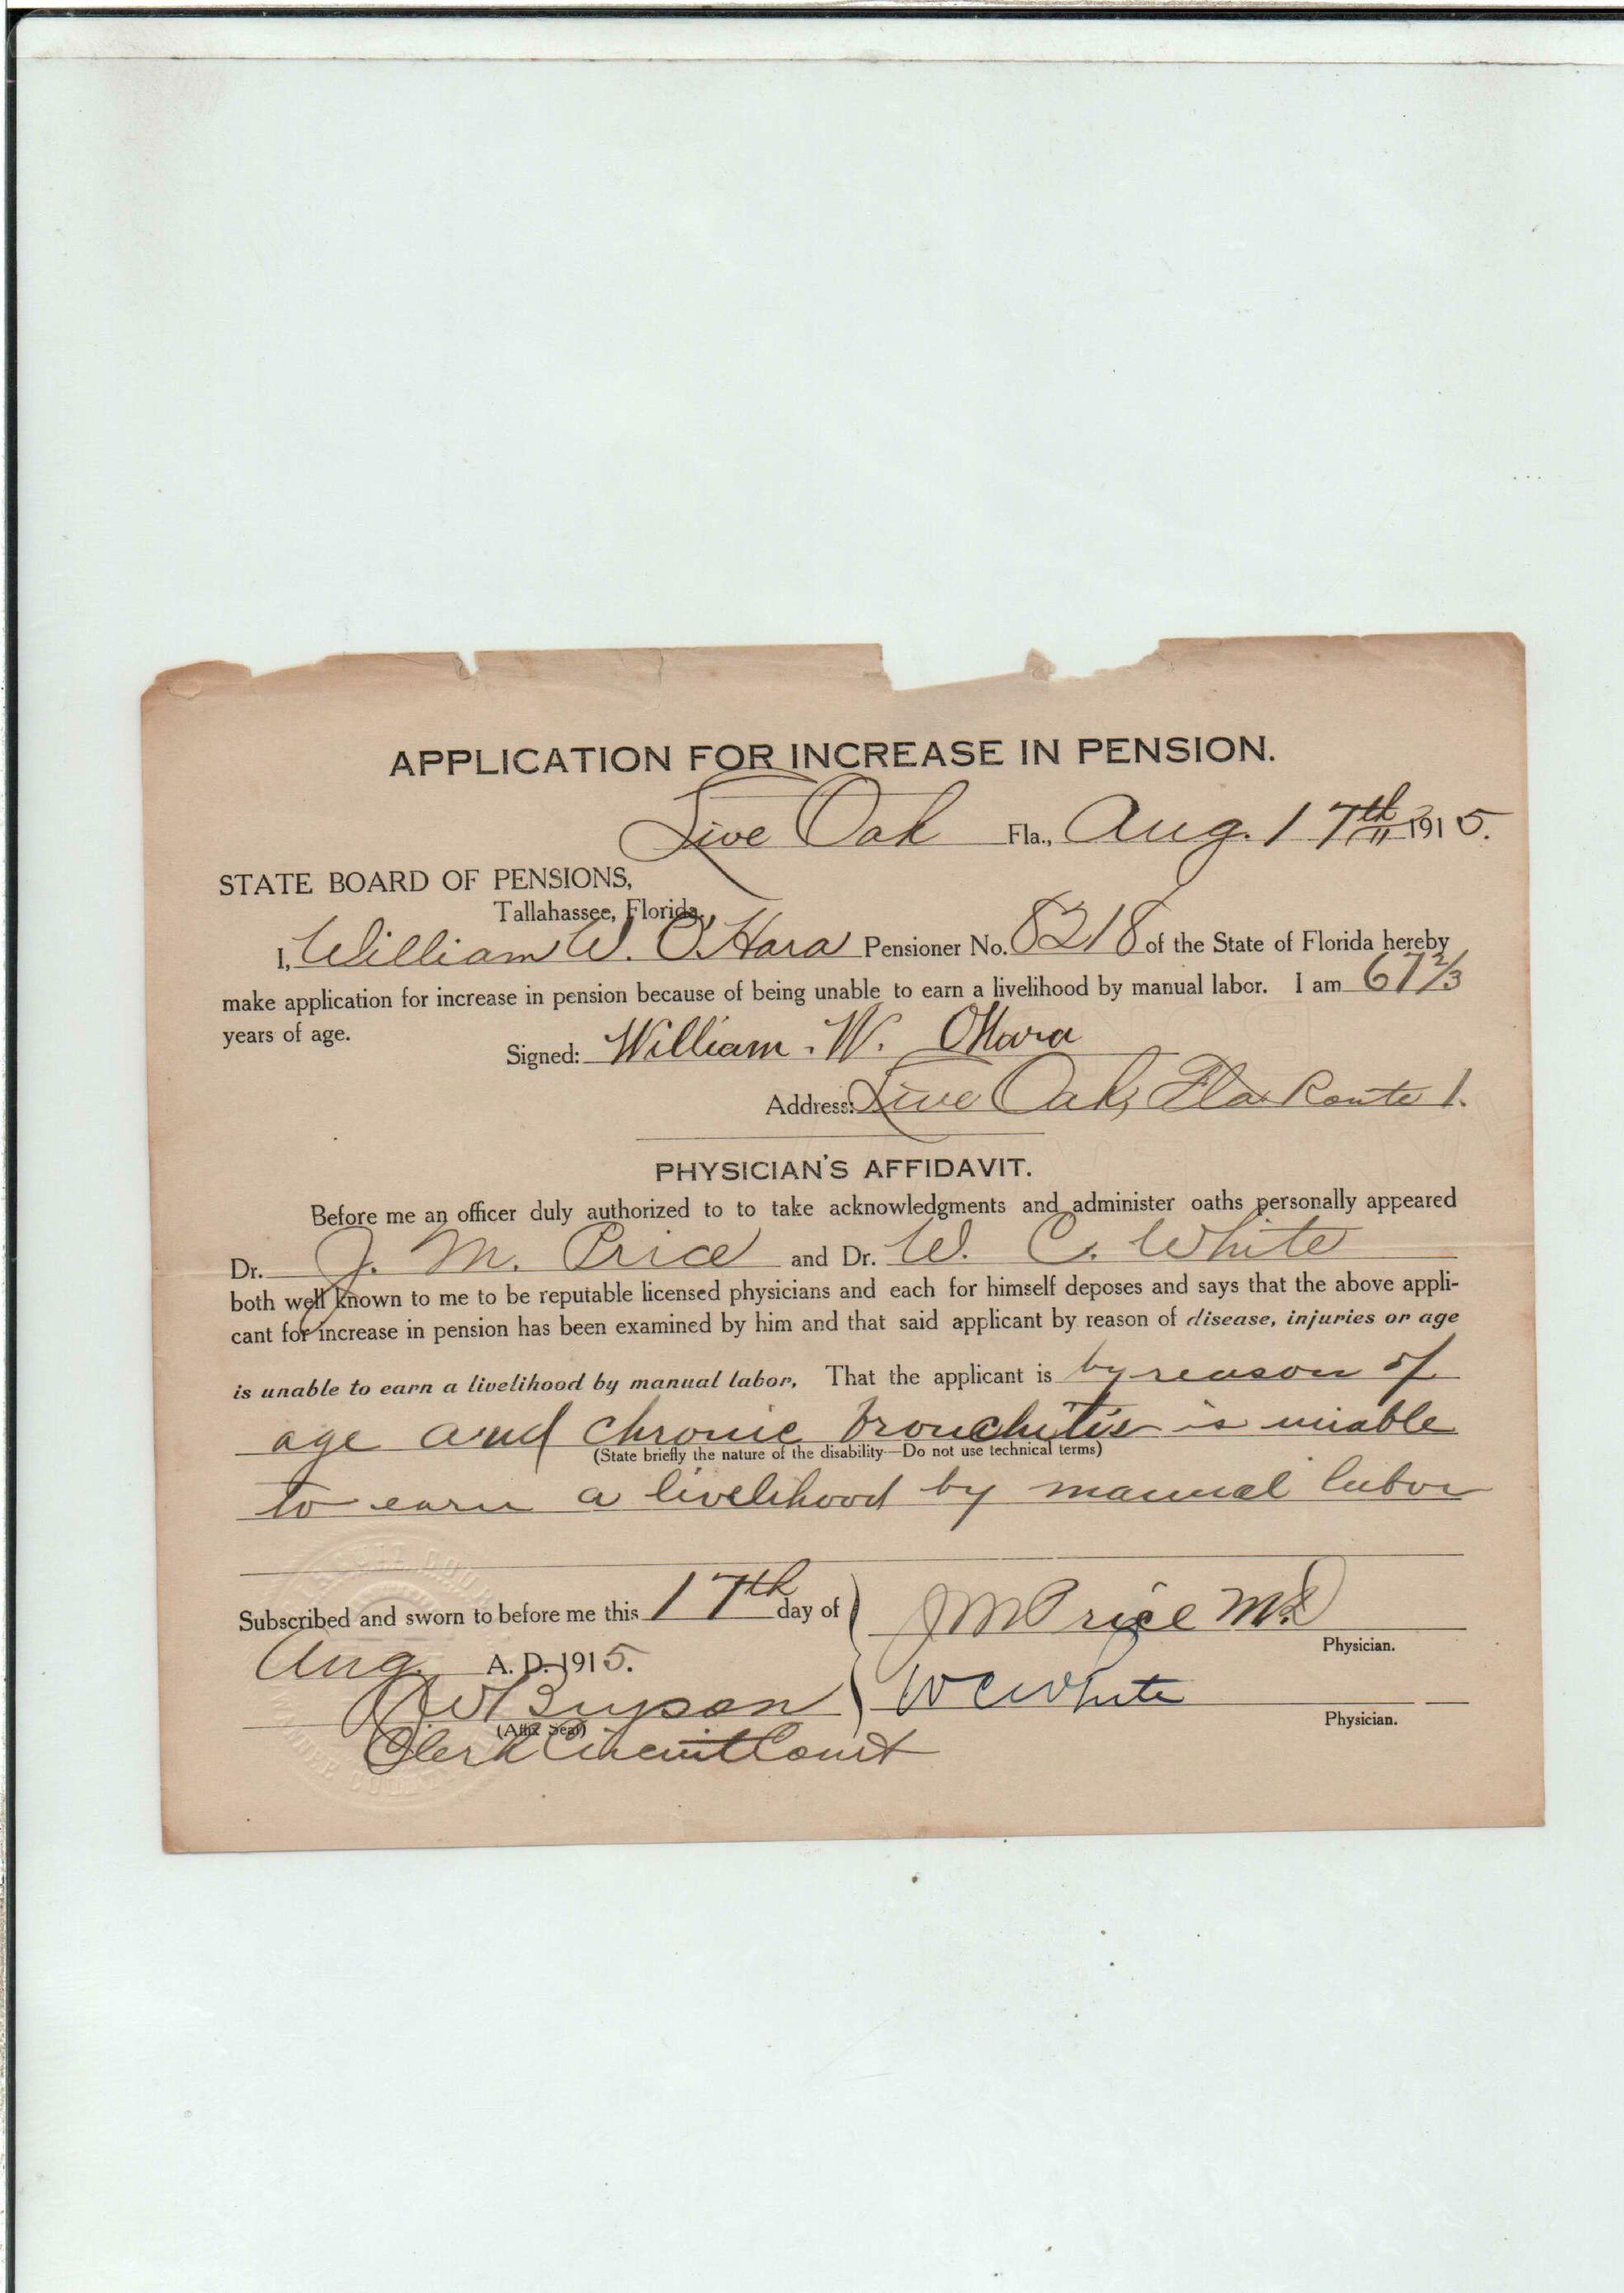 APPLICATION FOR INCREASE IN PENSION.
Live Oak Fla., Aug. 17th 1915.
STATE BOARD OF PENSIONS,
Tallahassee, Florida.
I, William W. O'Hara Pensioner No. 8218 of the State of Florida hereby
make application for increase in pension because of being unable to earn a livelihood by manual labor. I am 67 2/3
years of age.
Signed: William. W. OHara
Address: Live Oak, Fla Route 1.
PHYSICIAN'S AFFIDAVIT.
Before me an officer duly authorized to to take acknowledgments and administer oaths personally appeared
Dr. J. M. Price and Dr. W. C. White
both well known to me to be reputable licensed physicians and each for himself deposes and says that the above appli-
cant for increase in pension has been examined by him and that said applicant by reason of disease, injuries or age
is unable to earn a livelihood by manual labor, That the applicant is by reason of
age and chronic bronchitis is unable
(State briefly the nature of the disability—Do not use technical terms)
to earn a livelihood by manual labor
Subscribed and sworn to before me this 17th day of
Aug. A. D. 1915.
J M Price M.D
Physician.
Bryson
W C White
Physician.
(Affix Seal)
Clerk Circuit Court